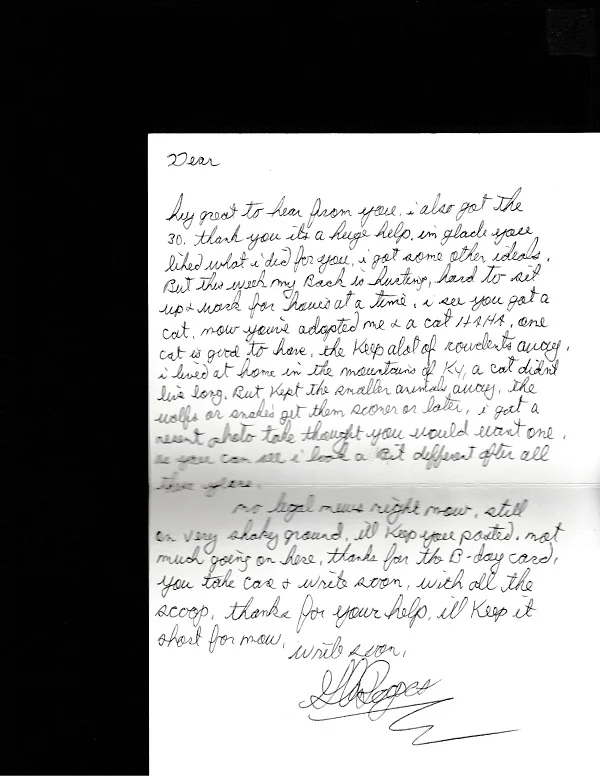 Dear
hey great to hear from you, i also got the
30. thank you its a huge help, im glade you
liked what i did for you, i got some other ideals.
But this week my Back is hurting, hard to sit
up & work for hours at a time, i see you got a
cat, now you've adopted me & a cat HAHA, one
cat is good to have, the Keep alot of roudents away.
i lived at home in the mountains of Ky, a cat didnt
live long. But Kept the smaller animals away, the
wolfs or snakes get them sooner or later, i got a
resent photo take thought you would want one.
as you can see i look a Bit different after all
these years.
no legal news right now, still
on very shaky ground, ill Keep you posted, not
much going on here, thanks for the B-day card,
you take care & write soon, with all the
scoop, thanks for your help, ill Keep it
short for now.
write soon,